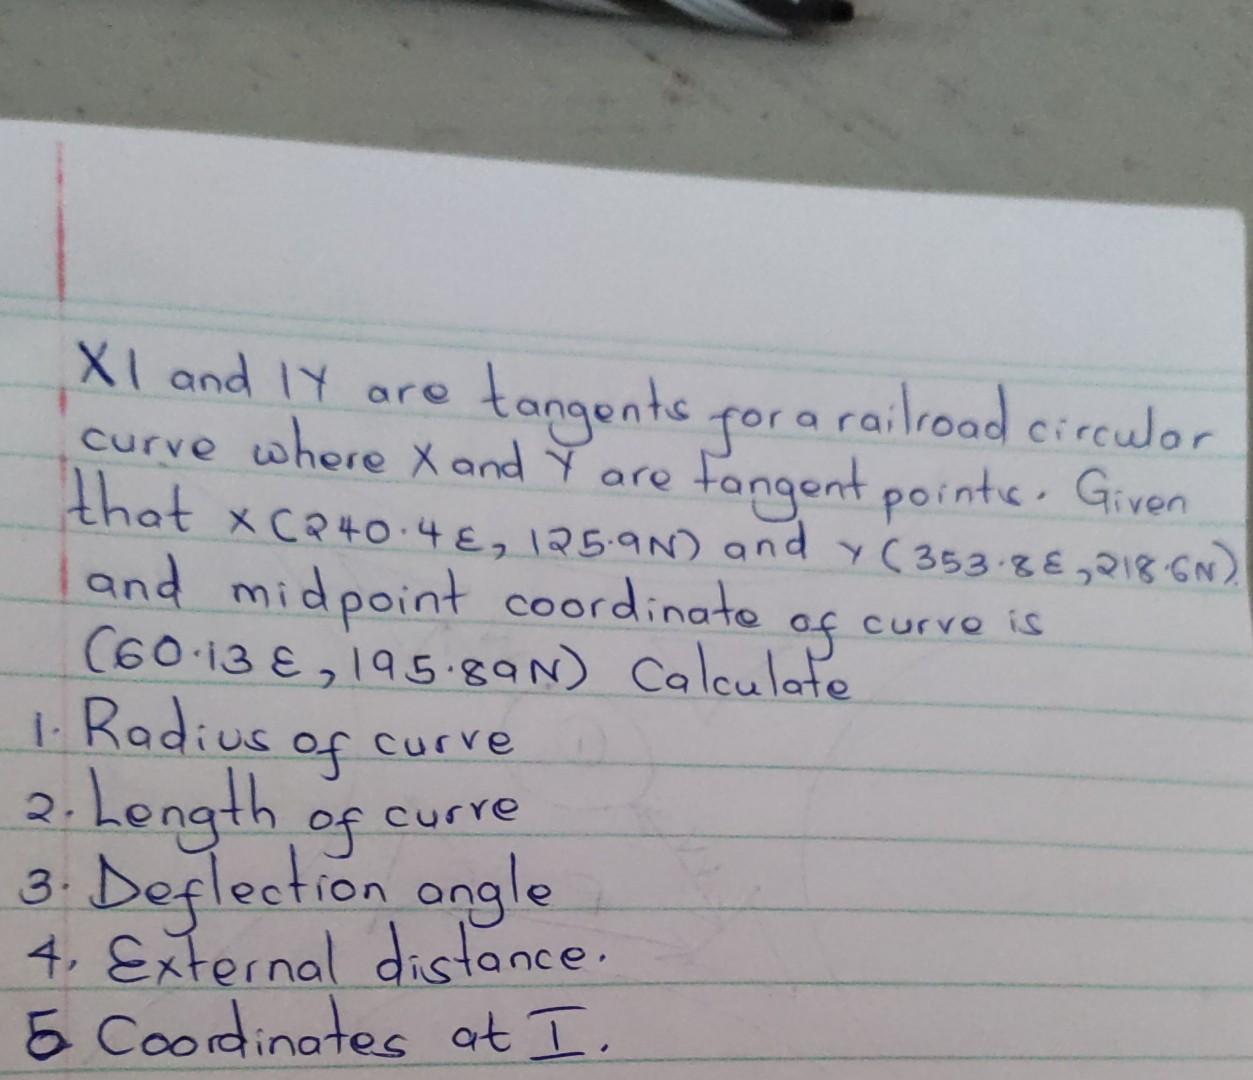 XI and IY are tangents for a railroad circular
curve where X and Y are tangent points. Given
that X (240.4E, 125.9N) and Y (353.8E, 218.6N).
and midpoint coordinate of curve is
(60.13E, 195.89N) Calculate
1. Radius of curve
2. Length of curve
3. Deflection angle
4. External distance.
5 Coordinates at I.